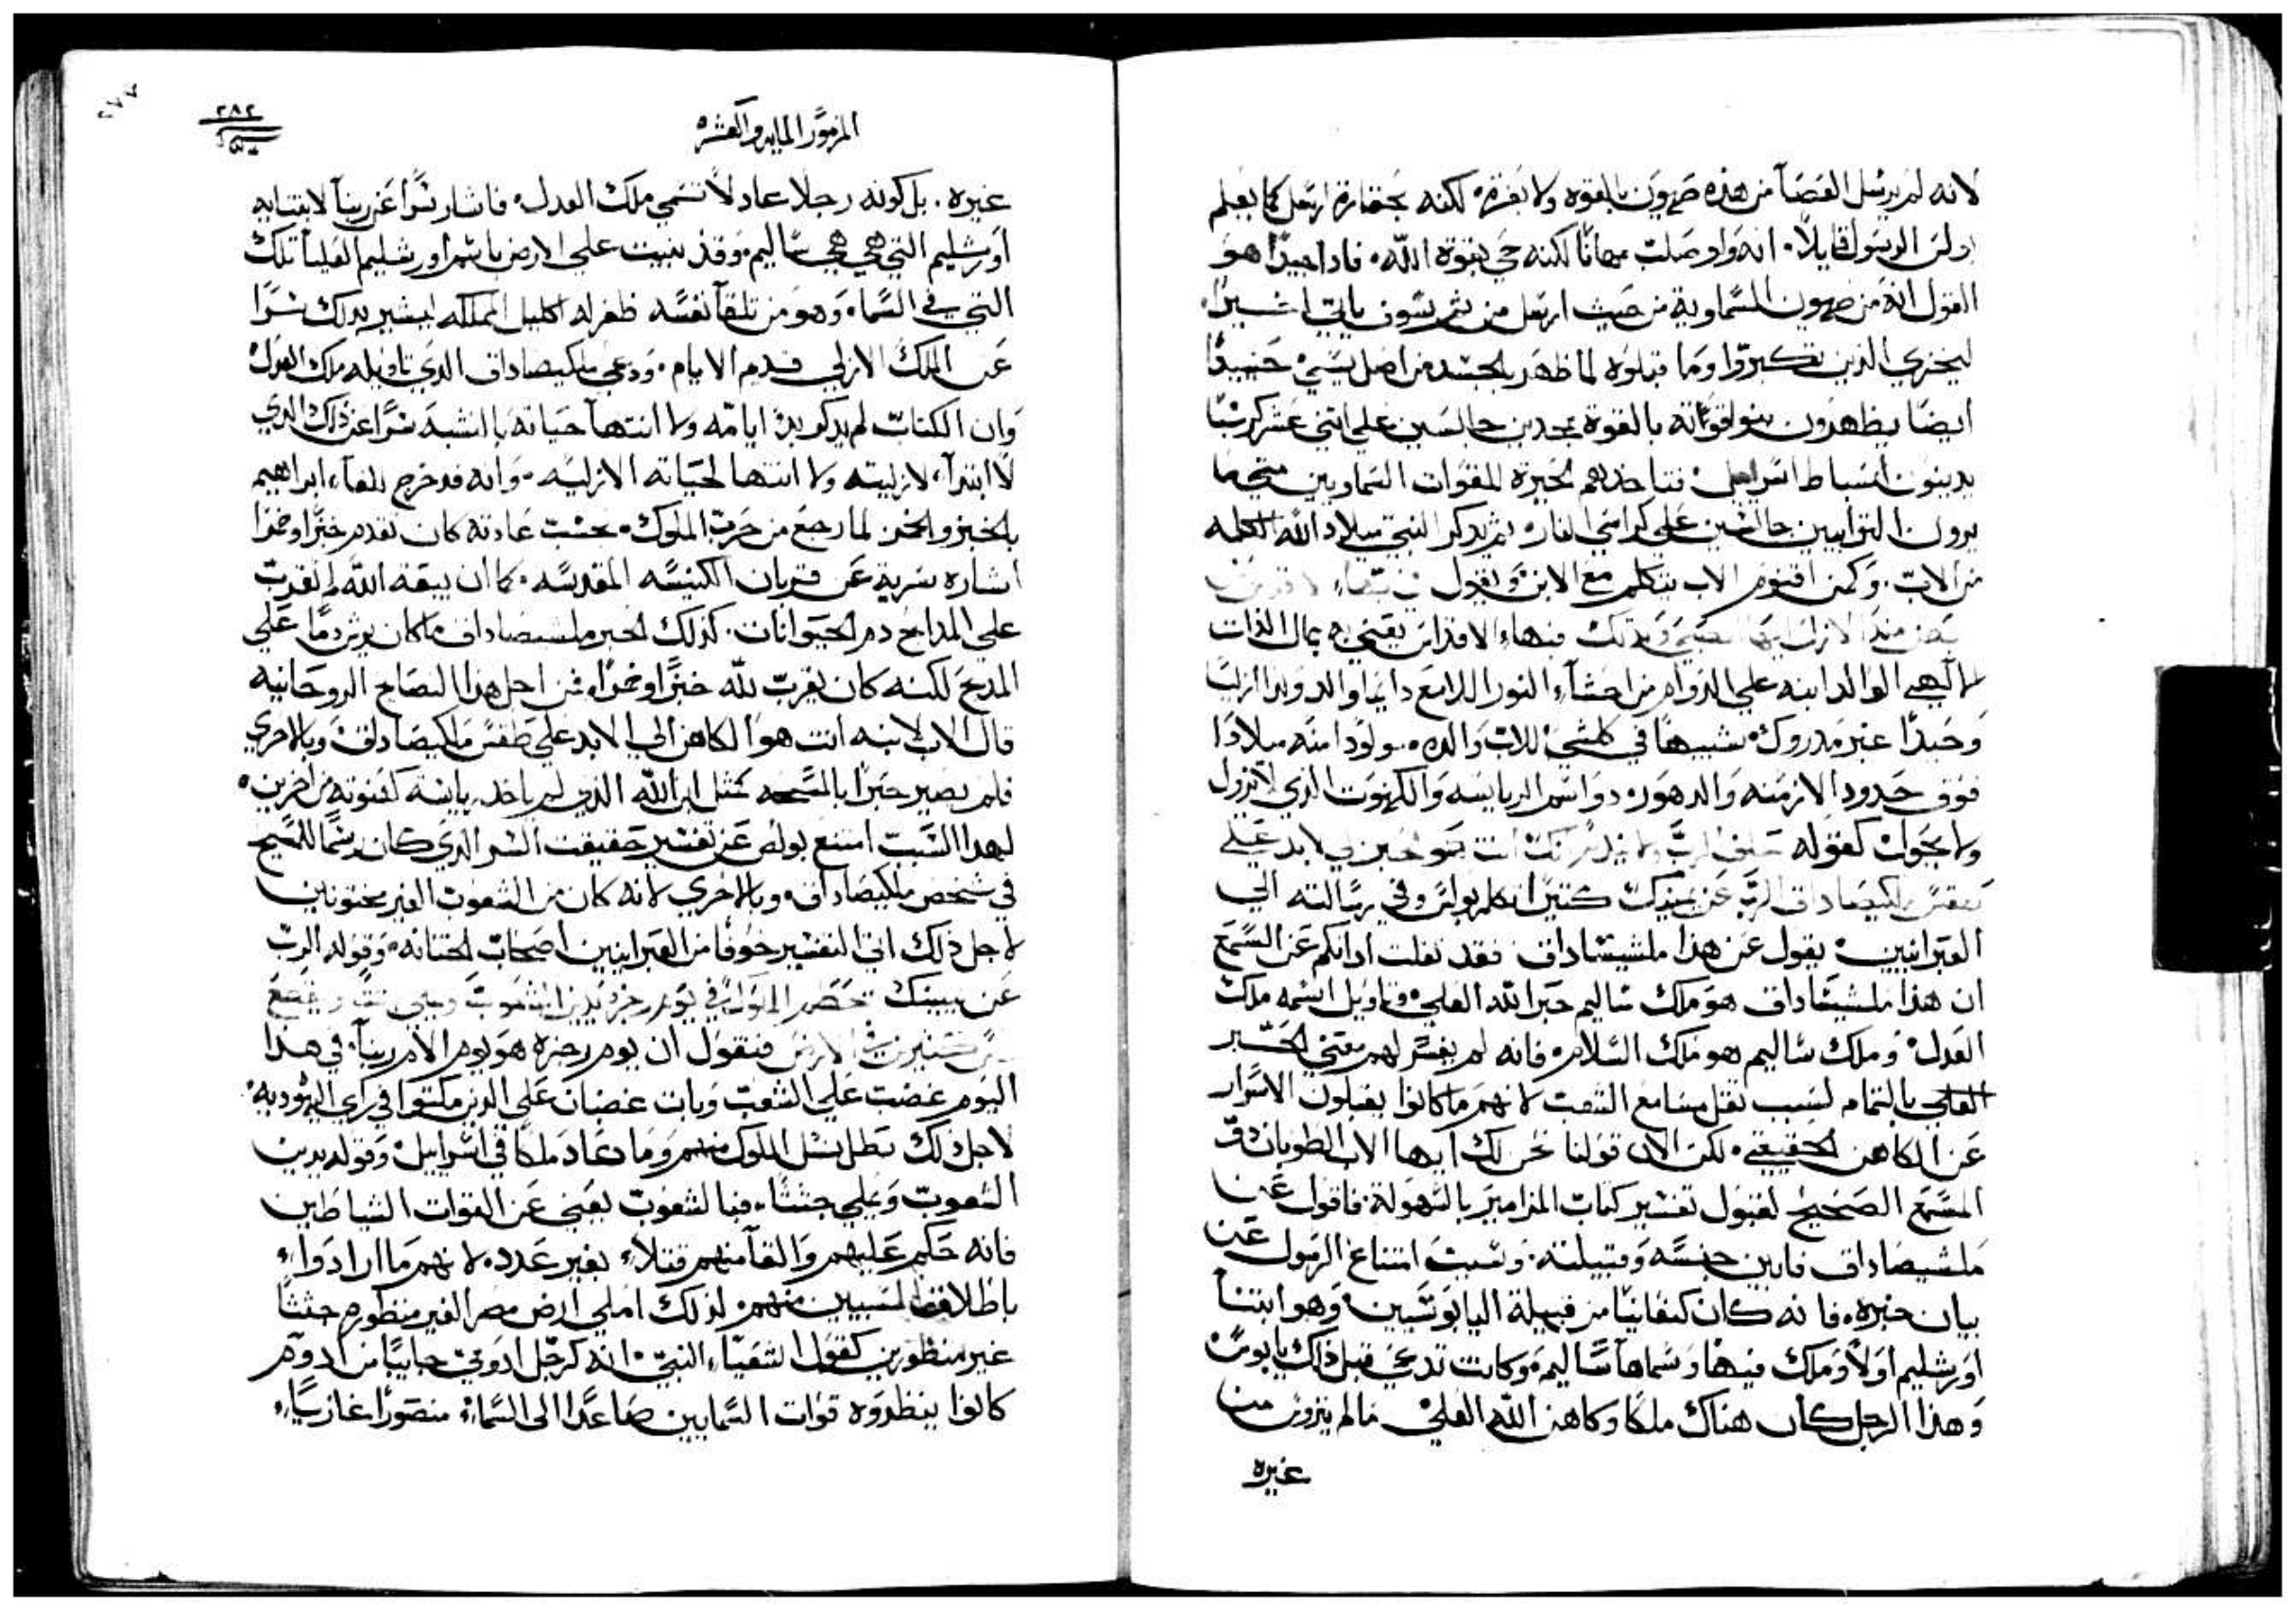 لانه لم يرسل العصا من هذه صهيون بالقوه ولا بعزه لكنه بحقارة ارسل كما يعلم
بولس الرسول قايلاً. انه واد صلب مهانًا لكنه حي بقوة الله. فاذا جيدًا هو
القول انه من صهيون السماوية من حيث ارسل من ثم سوف ياتي اخيرًا
ليخزي الذين تكبروا وما قبلوه لما ظهر بالجسد من اصل يسي حينيدًا
ايضا يظهرون بنو قوته بالقوة بمجد جالسين علي اثني عشر كرسيًا
يدينون اسباط اسراييل فتاخذهم الحيرة للقوات السماويين متي ما
يرون الترابيين جالسين علي كراسي النار. ثم يذكر النبي ميلاد الله الكلمه
من الاب. وكمن اقنوم الاب يتكلم مع الابن ويقول
بطن منذ الازل فبهاء الاقداس يعني به جمال الذات
الالهي الوالد ابنه علي الدوام من احشاء النور اللامع دايما والد وليدا ازليا
وحيدًا غير مدروك شبيهًا في كلشي للاب والده. مولودا منه ميلادا
فوق حدود الازمنه والدهور. دو اسم الرياسه والكهنوت الذي لا يزول
ولا يحول كقوله حلف الرب ولا يندم انك انت هو الحبر الي الابد علي
طقس ملكيصاداق الرب عن يمينك كثيرًا تكلم بولس في رسالته الي
العبرانيين. يقول عن هذا ملشيصاداق فقد ثقلت اذانكم عن السمع
ان هذا ملشيصاداق هو ملك ساليم حبر الله العلي وتاويل اسمه ملك
العدل. وملك ساليم هو ملك السلام. فانه لم يفسر لهم معني الحبر
العلي بالتمام لسبب ثقل مسامع الشعب لانهم ما كانوا يقبلون الاسرار
عن الكاهن الحقيقي. لكن الان قولنا نحن لك ايها الاب الطوبان ذو
المسمع الصحيح لقبول تفسير كتاب المزامير بالسهولة. فاقول عن
ملشيصاداق فابين جنسه وقبيلته. وسبب امتناع الرسول عن
بيان خبره. فانه كان كنعانيًا من قبيلة اليابوسيين وهو ابتنا
اورشليم اولاً وملك فيها وسماها ساليم. وكانت تدعي قبل ذلك يابوس
وهذا الرجل كان هناك ملكًا وكاهن الله العلي مالم يزوره من
غيره
المزمور المايه والعشره
٢٨٢
٢٧٧
غيره. بل كونه رجلا عاد لا تسمي ملك العدل. فاشار سرًا عن ربنا لابتنايه
اورشليم التي هي هي ساليم. وقد بنيت علي الارض باسم اورشليم العليا تلك
التي في السماء. وهو من تلقا نفسه ظفر له اكليل المملكه ليشير بذلك سرًا
عن الملك الازلي قديم الايام. ودعي ملكيصاداق الذي تاويله ملك العدل
وان الكتاب لم يذكر بدؤ ايامه ولا انتهآ حياته بالنسبه سرًا عن ذلك الذي
لا ابتدآء لازليته ولا انتها لحياته الازليه. وانه قد خرج للقاء ابراهيم
بالخبز والخمر لما رجع من حرب الملوك. بحسب عادته كان تقدم خبزًا وخمرا
اشاره سرية عن قربان الكنيسه المقدسه. كما ان بيقة الله القدت
علي المدابح دم الحيوانات. كذلك الحبر ملشيصاداق ما كان يوثر دمًا علي
المدبح لكنه كان يقرب لله خبزًا وخمرًا. فمن اجل هذا النصاح الروحانيه
قال الاب لابنه انت هو الكاهن الي الابد علي طقس ملكيصادق وبالاحري
فلم يصير حبرًا بالمسحه كمثل ابن الله الذي لم ياخد رياسة كهنوته من اخرين.
لهذا السبب امتنع بولص عن تفسير حقيقت السر الذي كان رسمًا للمسيح
في شخص ملكيصاداق. وبالاحري لانه كان من الشعوب الغير مختونين
لاجل ذلك اتي التفسير خوفًا من العبرانيين اصحاب الختانه. وقوله الرب
عن يمينك تحطم الملوك في يوم رجزه يدين الشعوب ويملي جثثا ويقطع
روس كثيرين في الارض فنقول ان يوم رجزه هو يوم الام ربنا. في هذا
اليوم غضب علي الشعب وبات غضبان علي الذين مكثوا في راي اليهوديه.
لاجل ذلك بطل نسل الملوك منهم وما عاد ملكًا في اسراييل وقوله يدين
الشعوب ويملي جثثا. فبالشعوب يعني عن القوات الشياطين
فانه حكم عليهم والقا منهم قتلاء بغير عدد. لانهم ما ارادواء
باطلاق المسبيين منهم. لذلك املي ارض مصر الغير منظوره جثثا
غير منظورين كقول اشعياء النبي. انه كرجل اروني جاييًا من ادوم
كانوا ينظروه قوات السمايين صاعدًا الى السماء. منصورًا غازيًا.